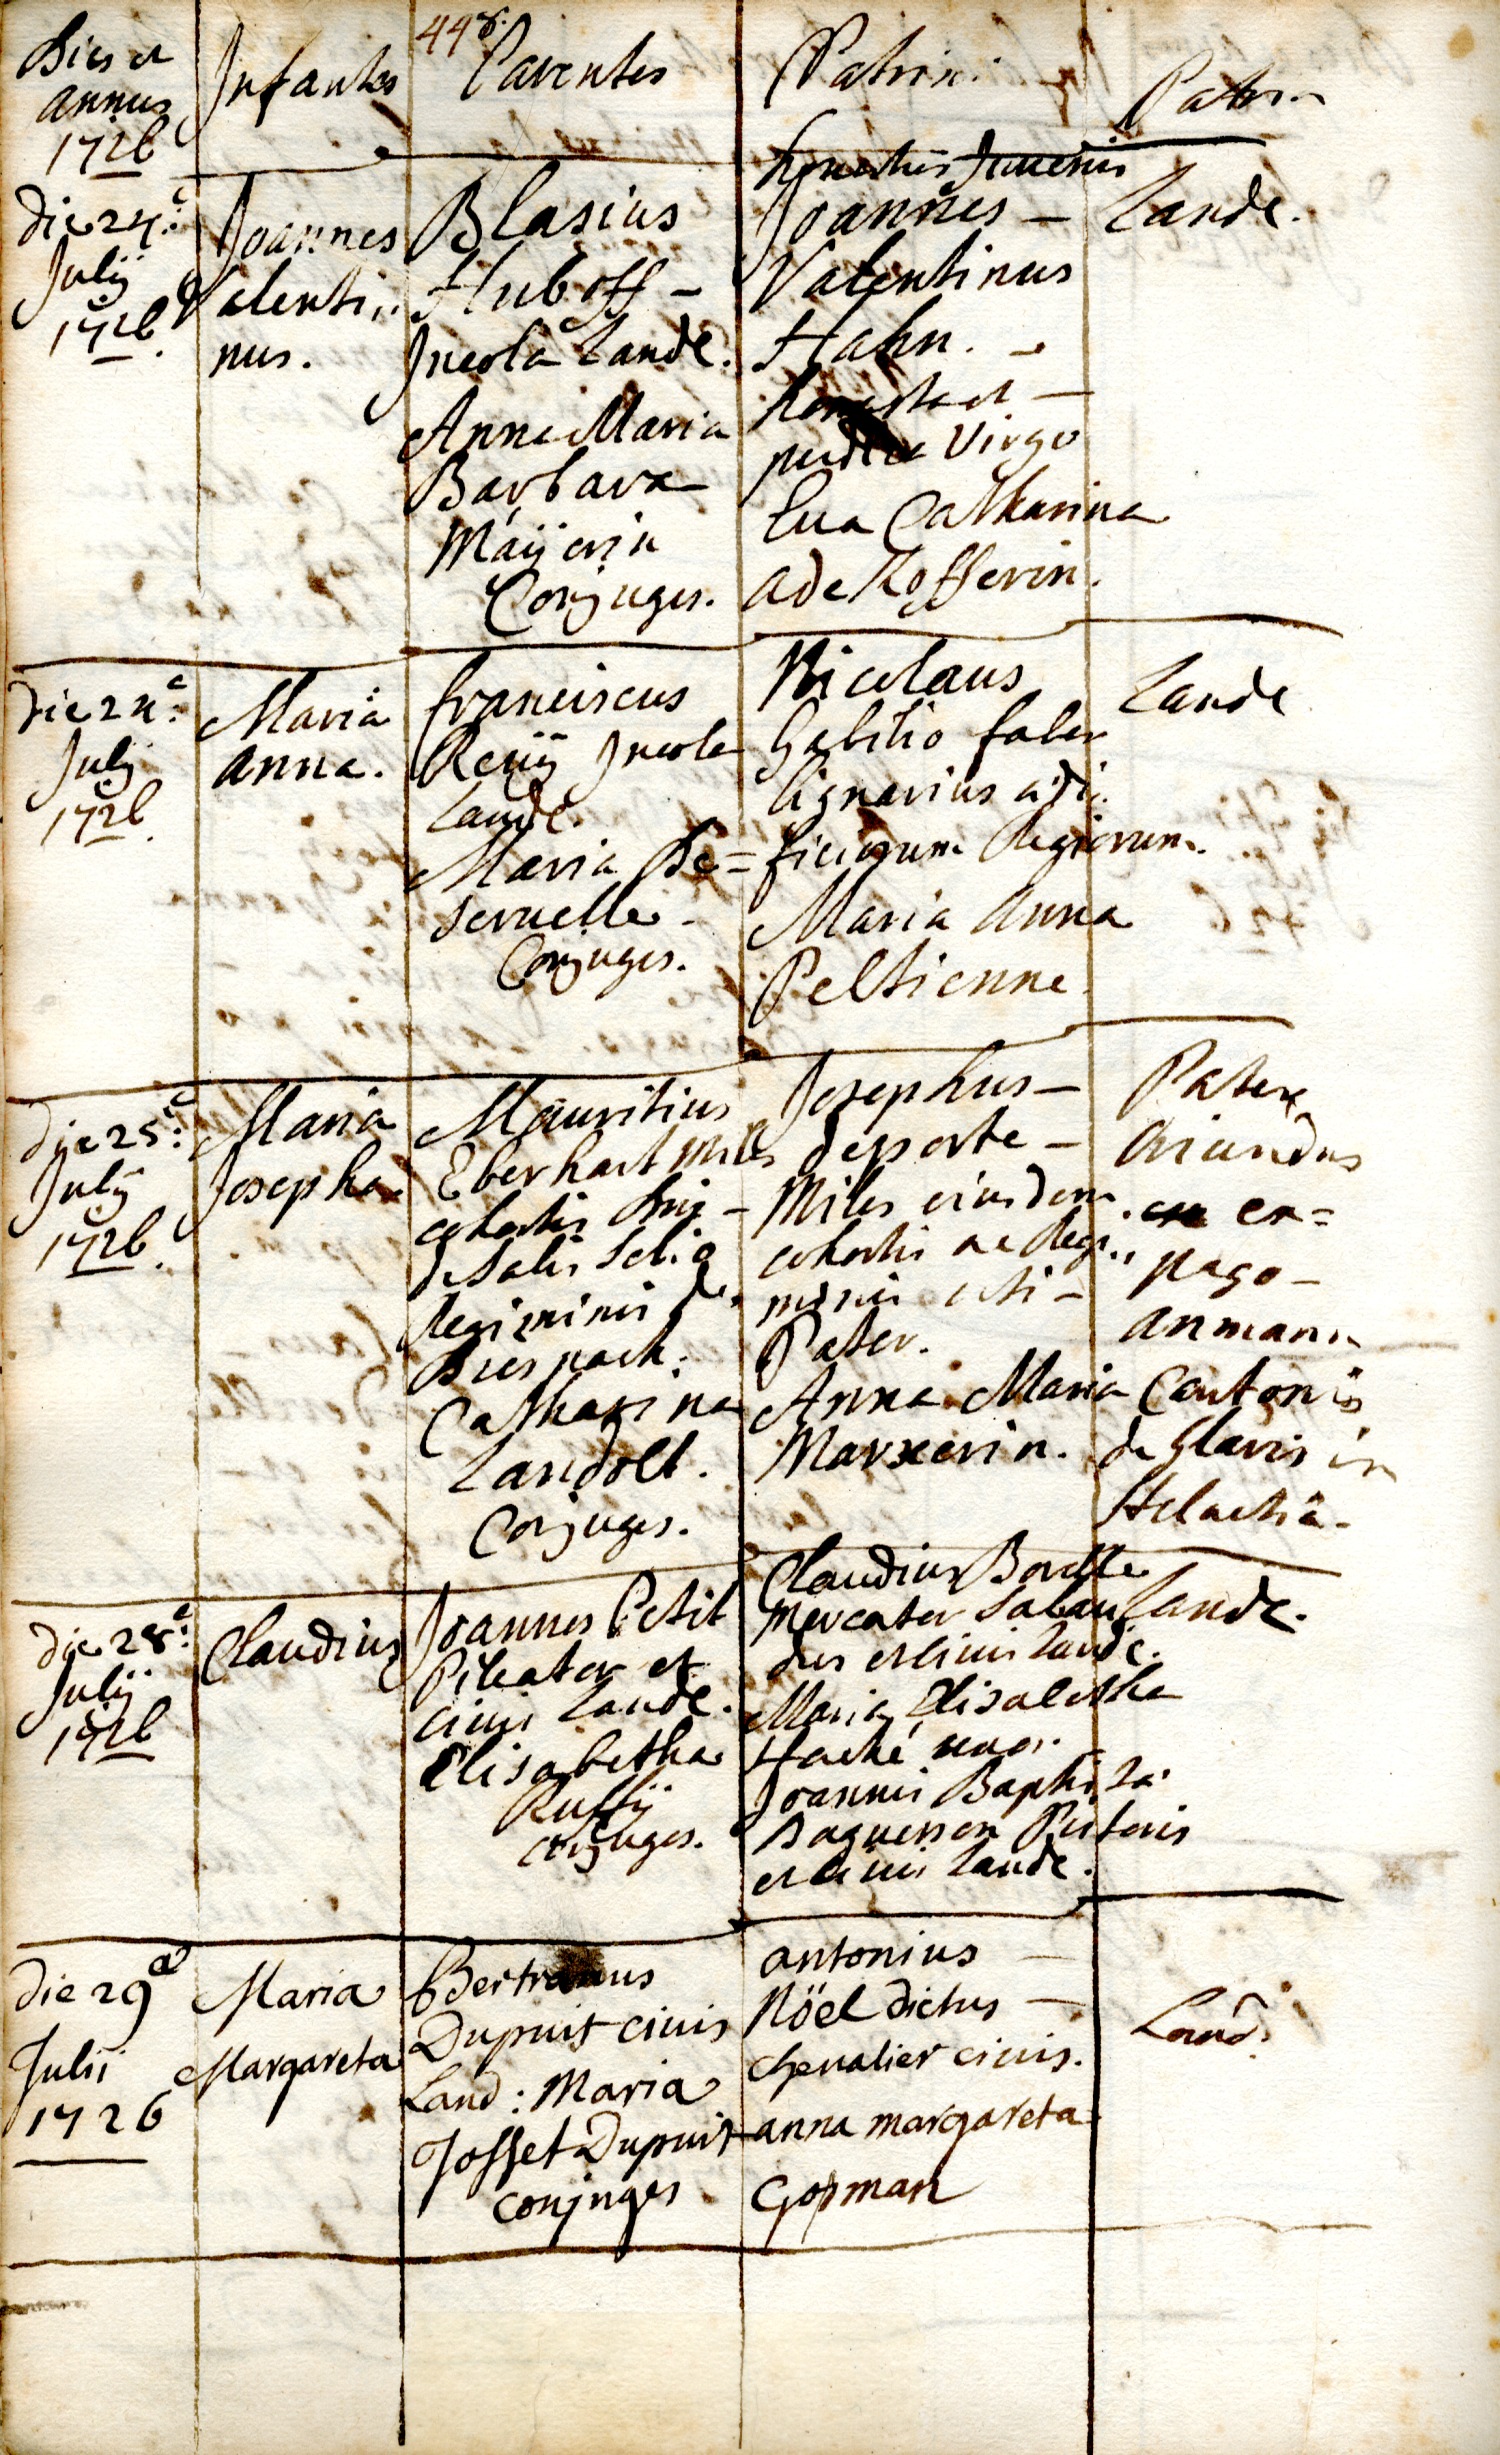 448.
Dies et
annus
1726
Infantes
Parentes
Patrini
Patria
Die 24.a
Julij
1726.
Joannes
Valenti„
nus.
Blasius
Huboff –
Incola Laude.
Anna Maria
Barbara
Maÿerin
Conjuges.
honestus Juvenis
Joannes –
Valentinus
Hahn. –
honesta et –
pudica Virgo
Eua Catharina
Laude.
Die 24.a
Julij
1726.
Maria
Anna.
franciscus
Incola
Laude.
Maria De=
seruelle –
Conjuges.
Nicolaus
faber
lignarius ædi„
ficiorum Regiorum.
Maria Anna
Peltienne.
Laude
Die 25.a
Julij
1726.
Maria
Josepha
Mauritius
Eberhart miles
cohortis Dni –
de Salis
Regiminis de
Catharina
Landolt.
Conjuges.
Josephus –
deporte –
Miles eiusdem
cohortis ac Regi„
minis uti –
Pater.
Anna Maria
Marxerin.
Pater
oriundus
ex=
pago –
Cantonis
de Glaris in
Helvetia.
Die 28.a
Julij
1726
Claudius
Joannes Petit
Pileator et
civis Laude.
Elisabetha
Ruffÿ
conjuges.
Claudius
Mercator Sabau
dus et civis Laude.
Maria Elisabetha
Haché uxor
Joannis Baptista
Pistoris
et civis Laude.
Laude.
Die 29a
Julii
1726
Maria
Margareta
Bertranus
Dupuit civis
Land: Maria
Josset Dupuit
conjuges
antonius –
Nöel dictus –
chevalier civis.
anna margareta
Gosman
Laud: